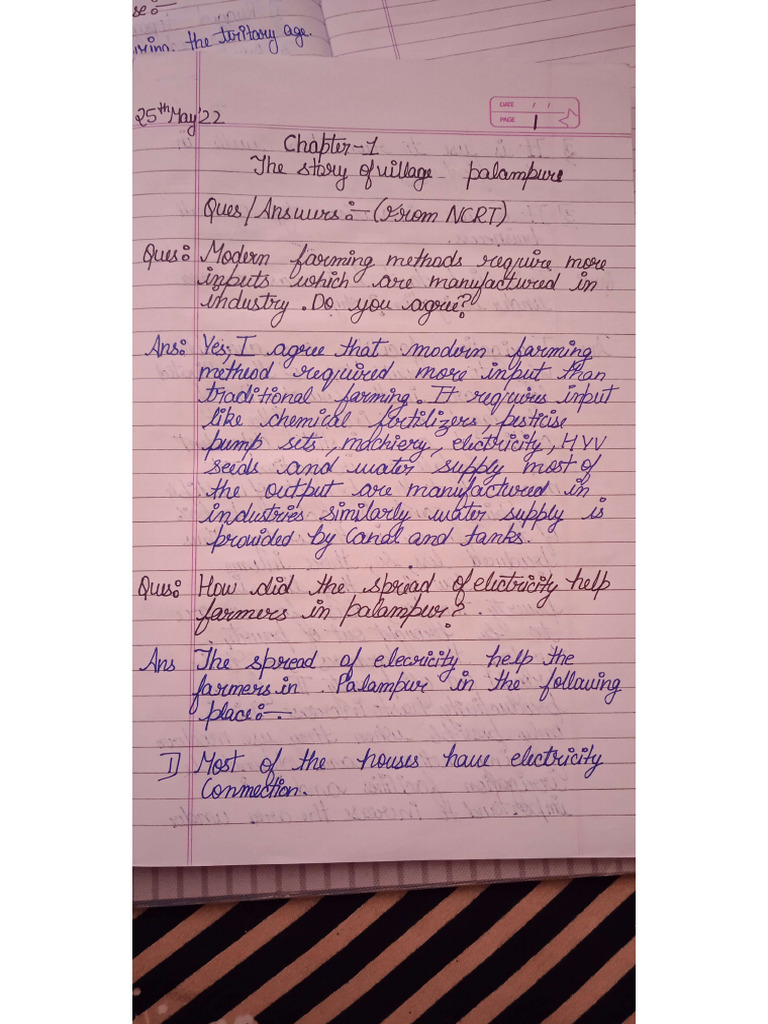 se:-
the tertiary age.
25th May'22
DATE / /
PAGE 1
Chapter-1
The story of village palampure
Ques/Answers:- (From NCRT)
Ques: Modern farming methods require more
inputs which are manufactured in
industry. Do you agree?
Ans: Yes, I agree that modern farming
metheod required more input than
traditional farming. It requires input
like chemical fertilizers, pesticise
pump sets, machiery, electricity, HYV
seeds and water supply most of
the output are manufactured in
industries similarly water supply is
provided by Canal and tanks.
Ques: How did the spread of electricity help
farmers in palampur?
Ans The spread of elecricity help the
farmers in Palampur in the following
place:-
I) Most of the houses have electricity
Connection.